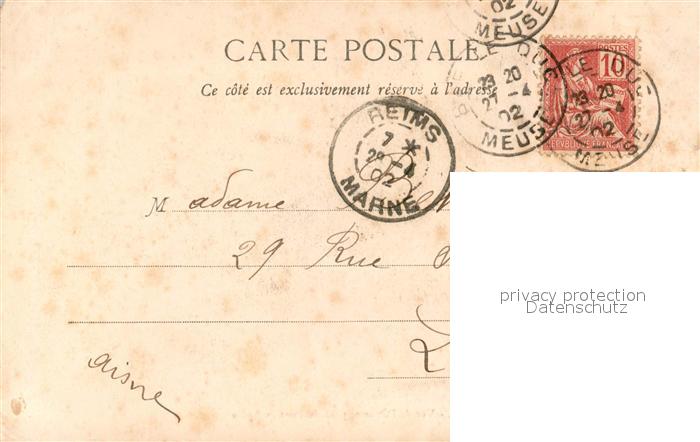 CARTE POSTALE
Ce côté est exclusivement réservé à l'adresse
02
MEUSE
LE DUC
23 20
27 -4
02
MEUSE
POSTES
10
LE DUC
23 20
27 -4
02
MEUSE
REIMS
7 *
-4
02
MARNE
Madame
29 Rue
Aisne
privacy protection
Datenschutz